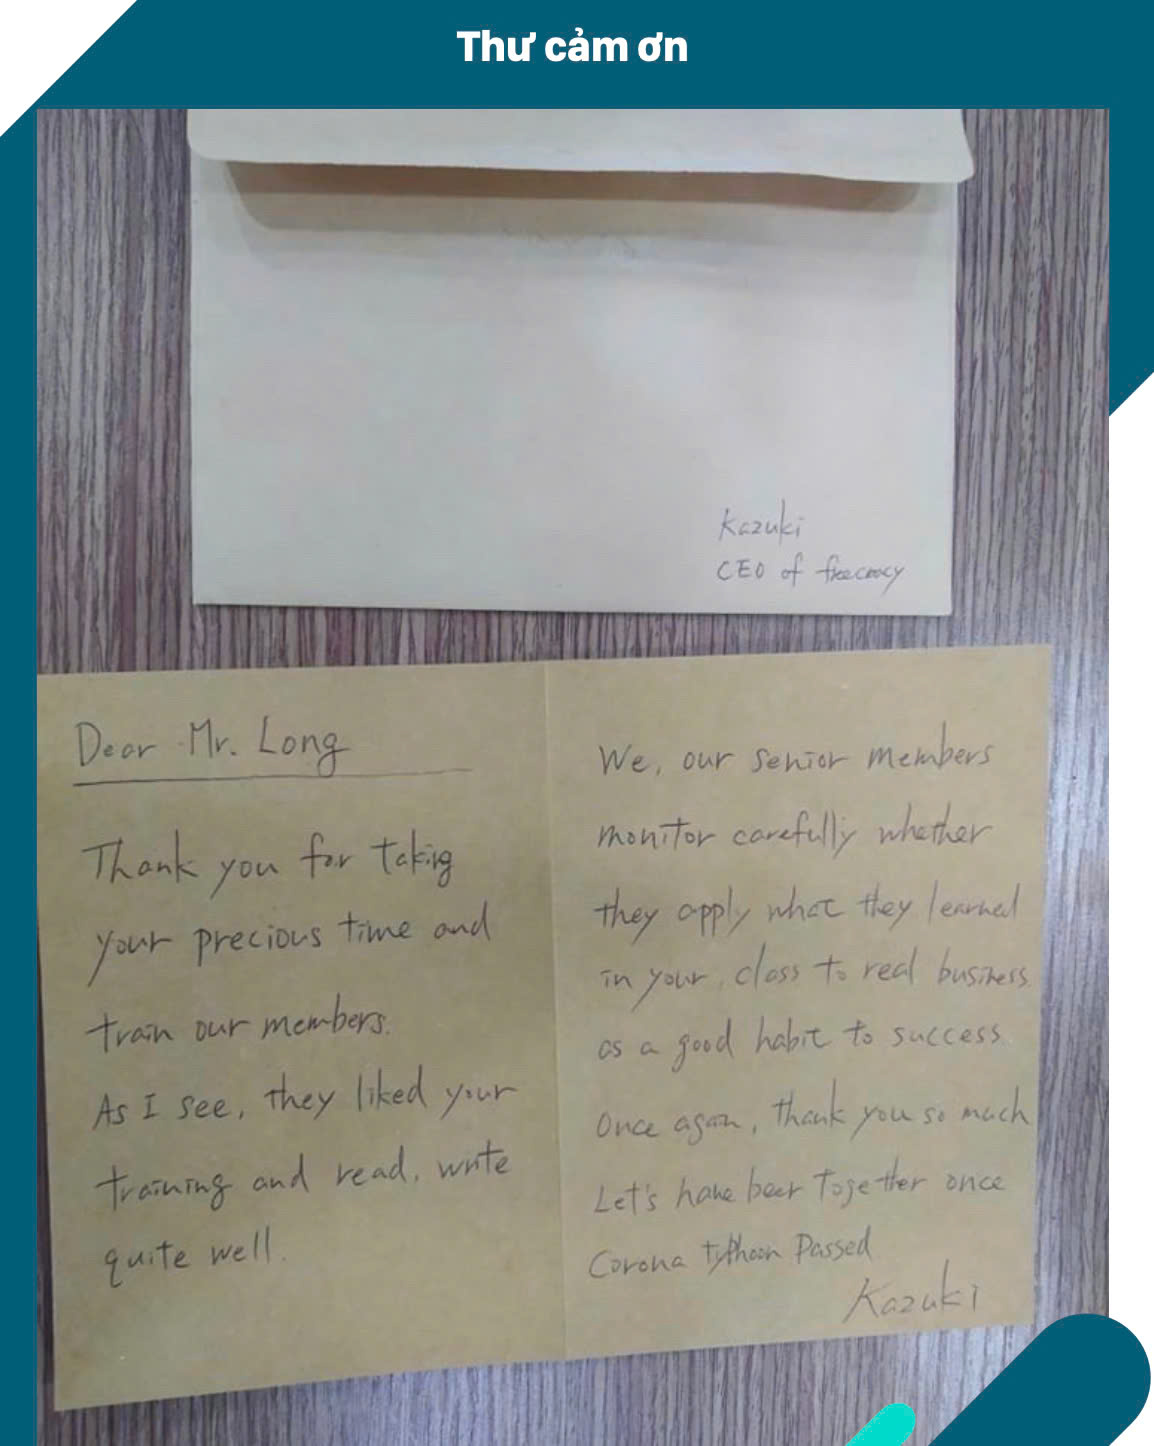 Thư cảm ơn
Kazuki
CEO of freecracy
Dear Mr. Long
Thank you for taking
your precious time and
train our members.
As I see, they liked your
training and read, write
quite well.
We, our senior members
monitor carefully whether
they apply what they learned
in your class to real business
as a good habit to success
Once again, thank you so much
Let's have beer together once
Corona typhoon Passed
Kazuki